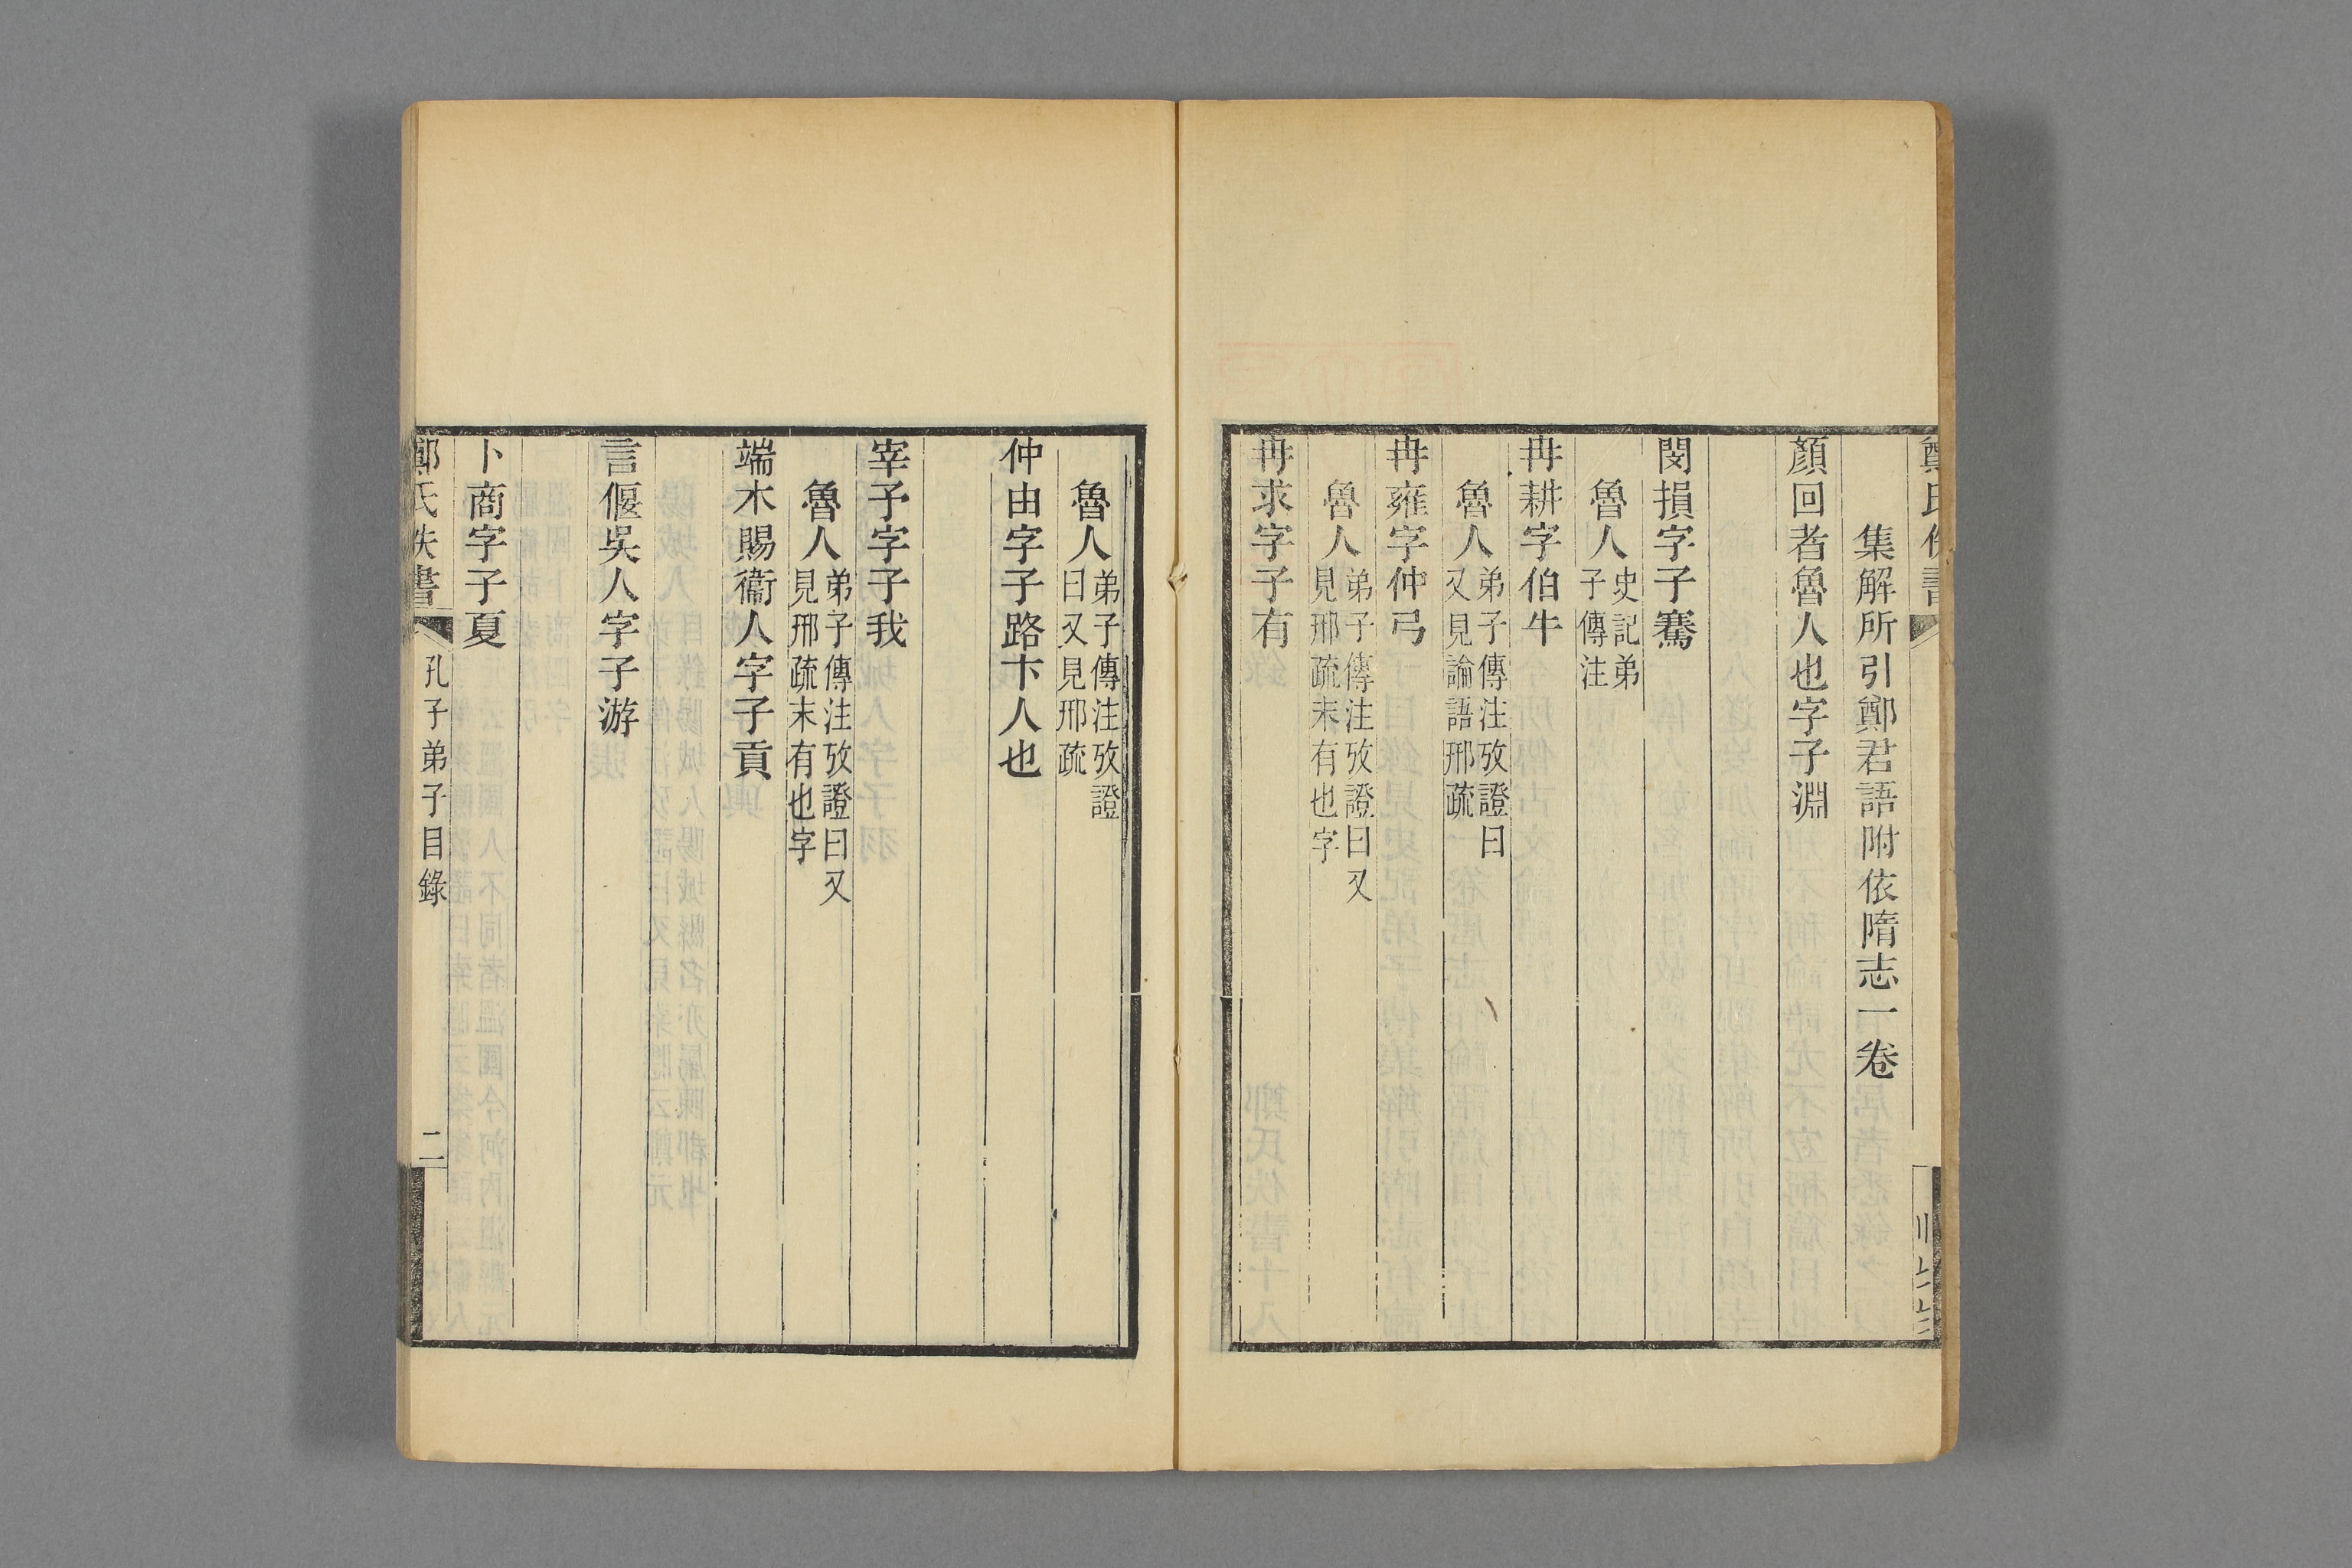 集解所引鄭君語附依隋志一卷
顏回者魯人也字子淵
閔損字子騫
魯人史記弟子傳注
冉耕字伯牛
魯人弟子傳注攷證曰又見論語邢疏
冉雍字仲弓
魯人弟子傳注攷證曰又見邢疏末有也字
冉求字子有
魯人弟子傳注攷證曰又見邢疏
仲由字子路卞人也
宰予字子我
魯人弟子傳注攷證曰又見邢疏末有也字
端木賜衞人字子貢
言偃吳人字子游
卜商字子夏
鄭氏佚書 孔子弟子目錄 二